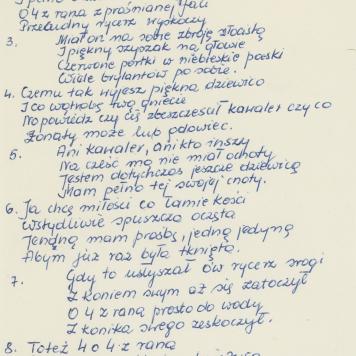 O 4 z rana z prośnianej fali
Przecudny rycerz wyskoczy
3. Miał on na sobie zbroję złocistą
I piękny szyszak na głowie
Czerwone portki w niebieskie paski
Wiele brylantów po sobie.
4. Czemu tak wyjesz piękna dziewico
I co wątrobę twą gniecie
No powiedz czy cię zbezcześcił kawaler czy co
Żonaty może lub gdowiec.
5. Ani kawaler, ani kto inszy
Na cześć mą nie miał ochoty
Jestem dotychczas jeszcze dziewicą
Mam pełno tej swojej cnoty.
6. Ja chcę miłości co łamie kości
Wstydliwie spuszcza oczęta
Jendną mam prośbę, jedną jedyną
Abym już raz była tknięta.
7. Gdy to usłyszał ów rycerz srogi
Z koniem swym aż się zatoczył
O 4 z rana prosto do wody
Z konika swego zeskoczył.
8. Toteż 4 o 4 z rana